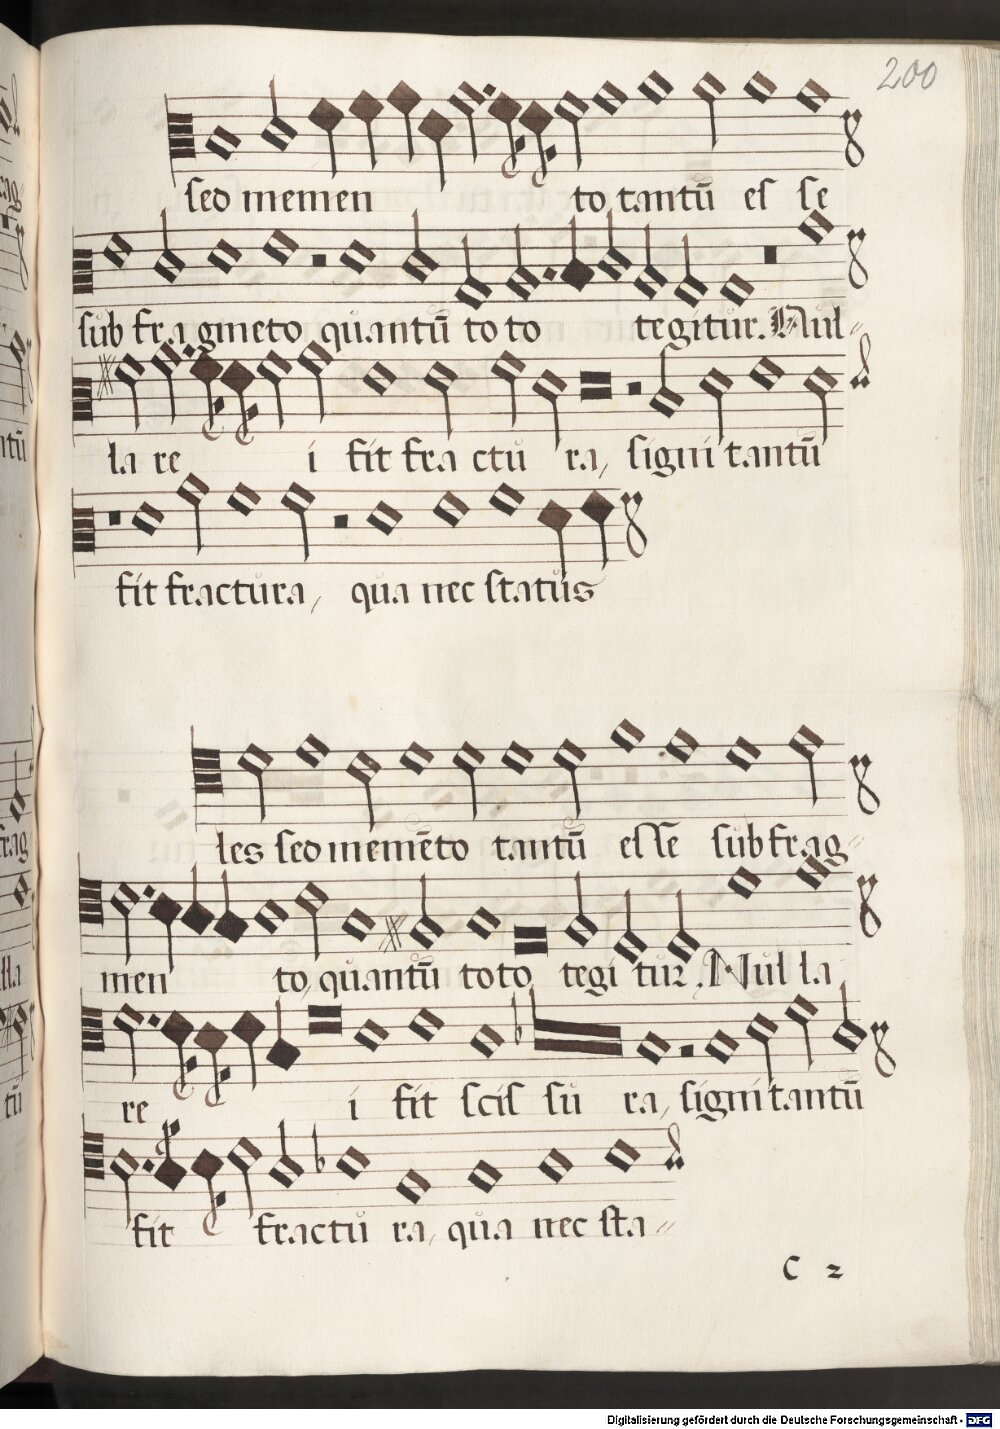 200
sed memen to tantū es se
sub fra gmeto quantū to to tegitur. Nul-
la re i fit fra ctu ra, signi tantū
fit fractura, qua nec status
les sed memēto tantū esse sub frag-
men to, quantū toto tegi tur. Nul la
re i fit scis su ra, signi tantū
fit fractu ra, qua nec sta-
C 2
Digitalisierung gefördert durch die Deutsche Forschungsgemeinschaft - DFG